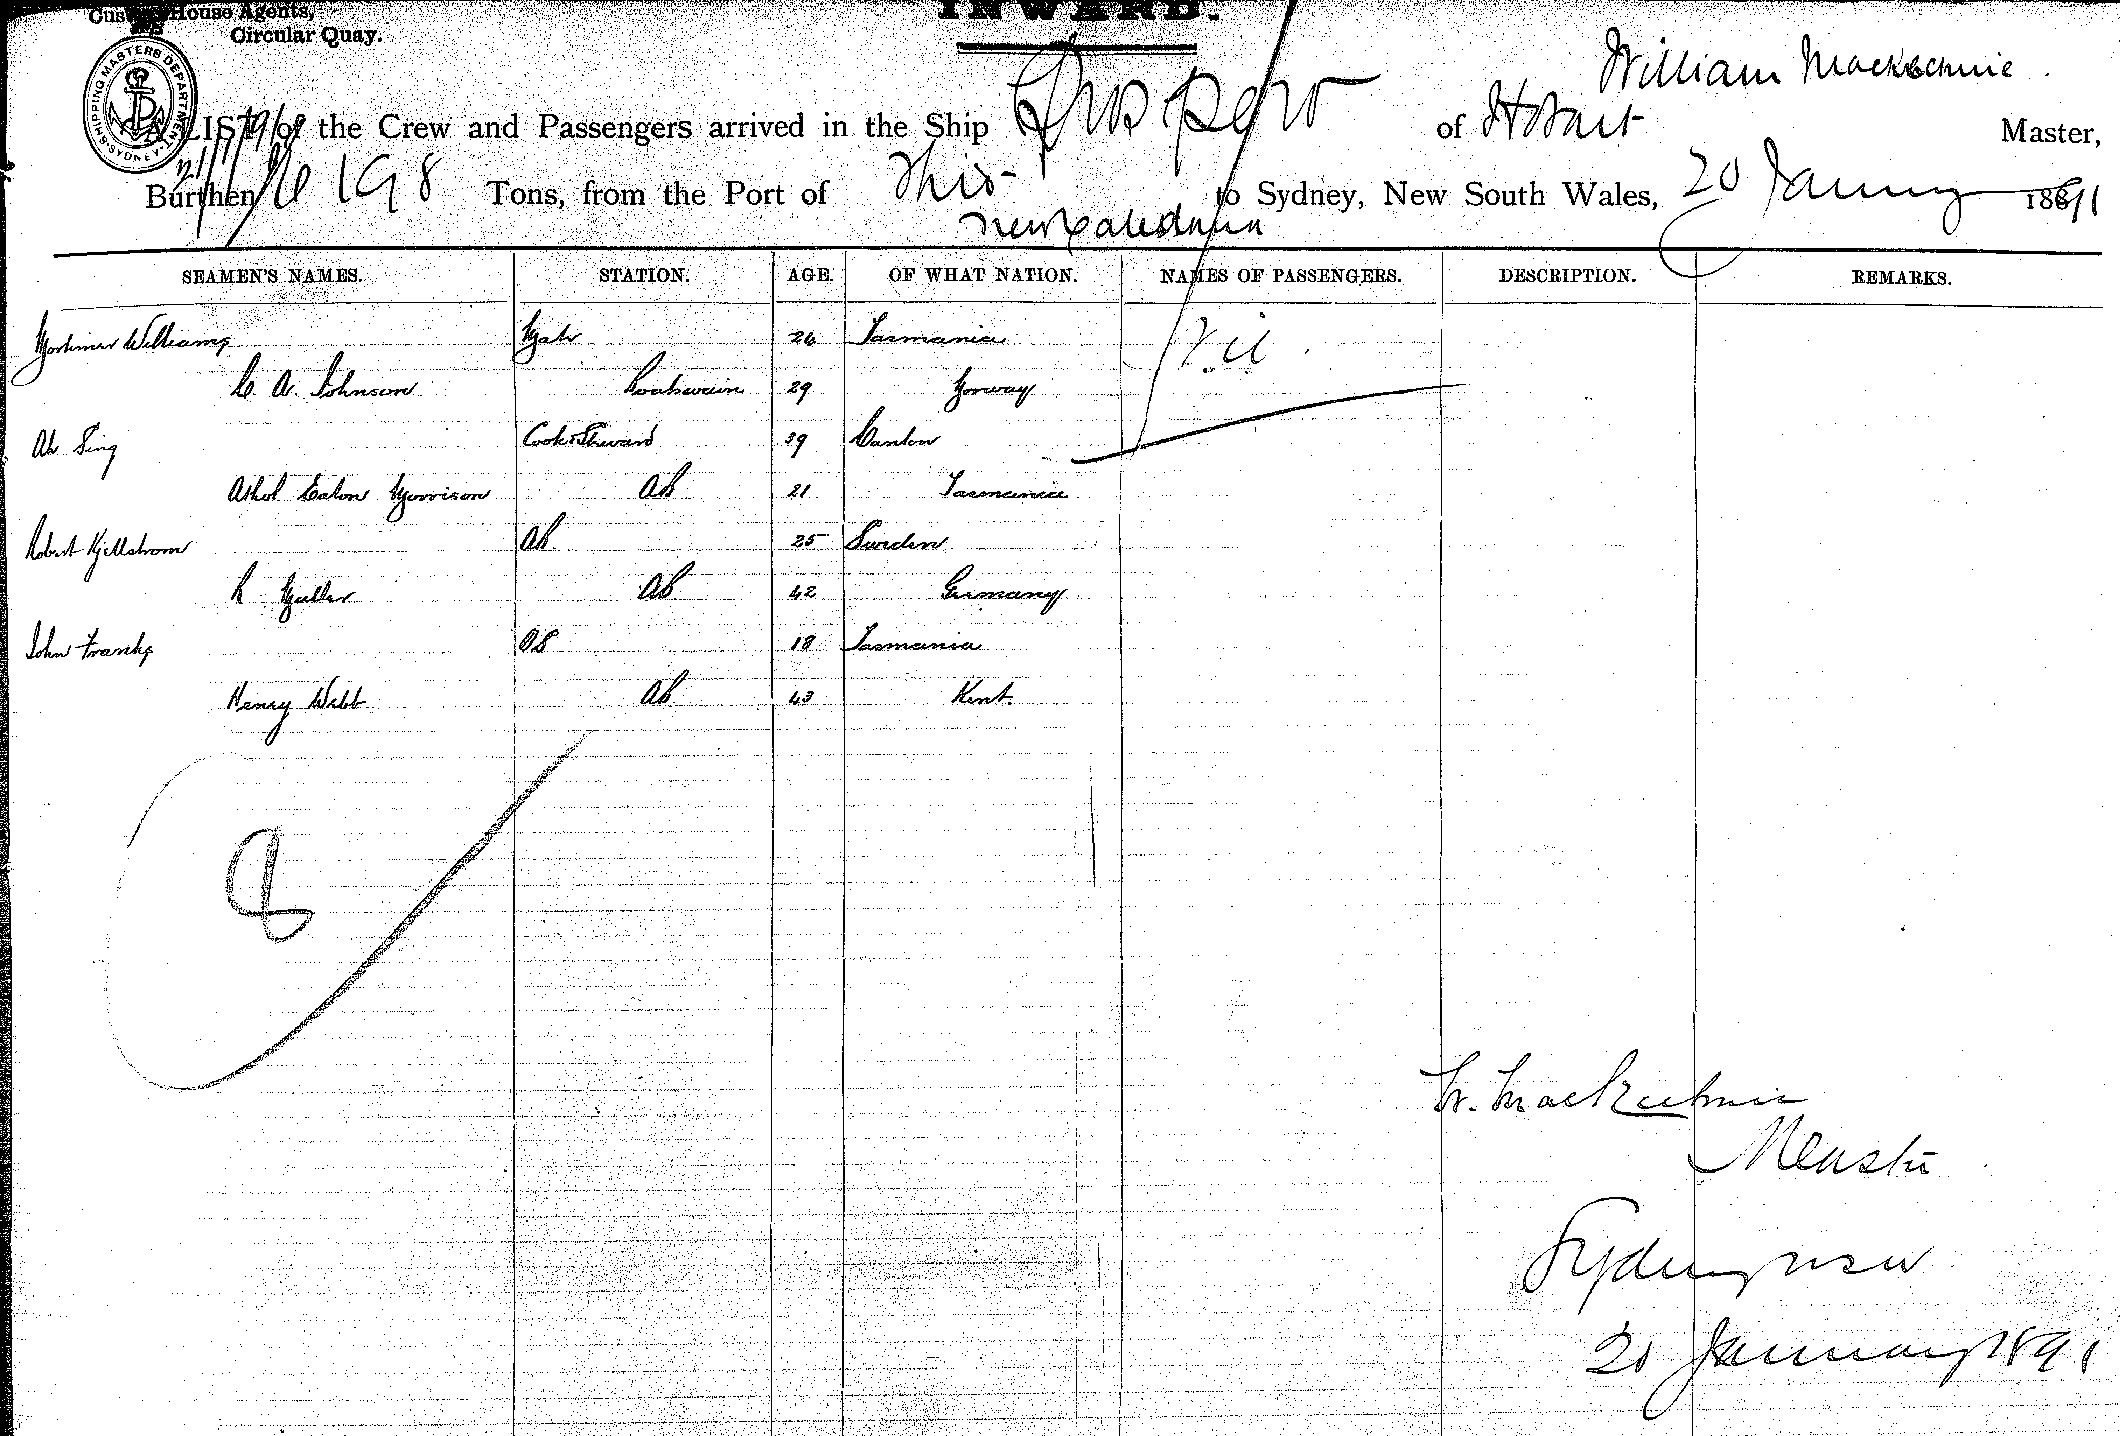 Custom House Agents,
Circular Quay.
INWARD.
SHIPPING MASTERS DEPARTMENT SYDNEY
William Mackechnie
A LIST of the Crew and Passengers arrived in the Ship of Hobart Master,
Burthen 198 Tons, from the Port of Thio to Sydney, New South Wales, 20 January 1891
New Caledonia
SEAMEN'S NAMES. STATION. AGE. OF WHAT NATION. NAMES OF PASSENGERS. DESCRIPTION. REMARKS.
Mortimer Williams Mate 26 Tasmania Nil
C. A. Johnson Boatswain 29 Norway
Ah Sing Cook & Steward 39 Canton
Athol Eaton Morrison AB 21 Tasmania
Robert Kjellstrom AB 25 Sweden
R Muller AB 42 Germany
John Franks OS 18 Tasmania
Henry Webb AB 43 Kent
8
W. Mackechnie
Master
Sydney NSW
20 January 1891